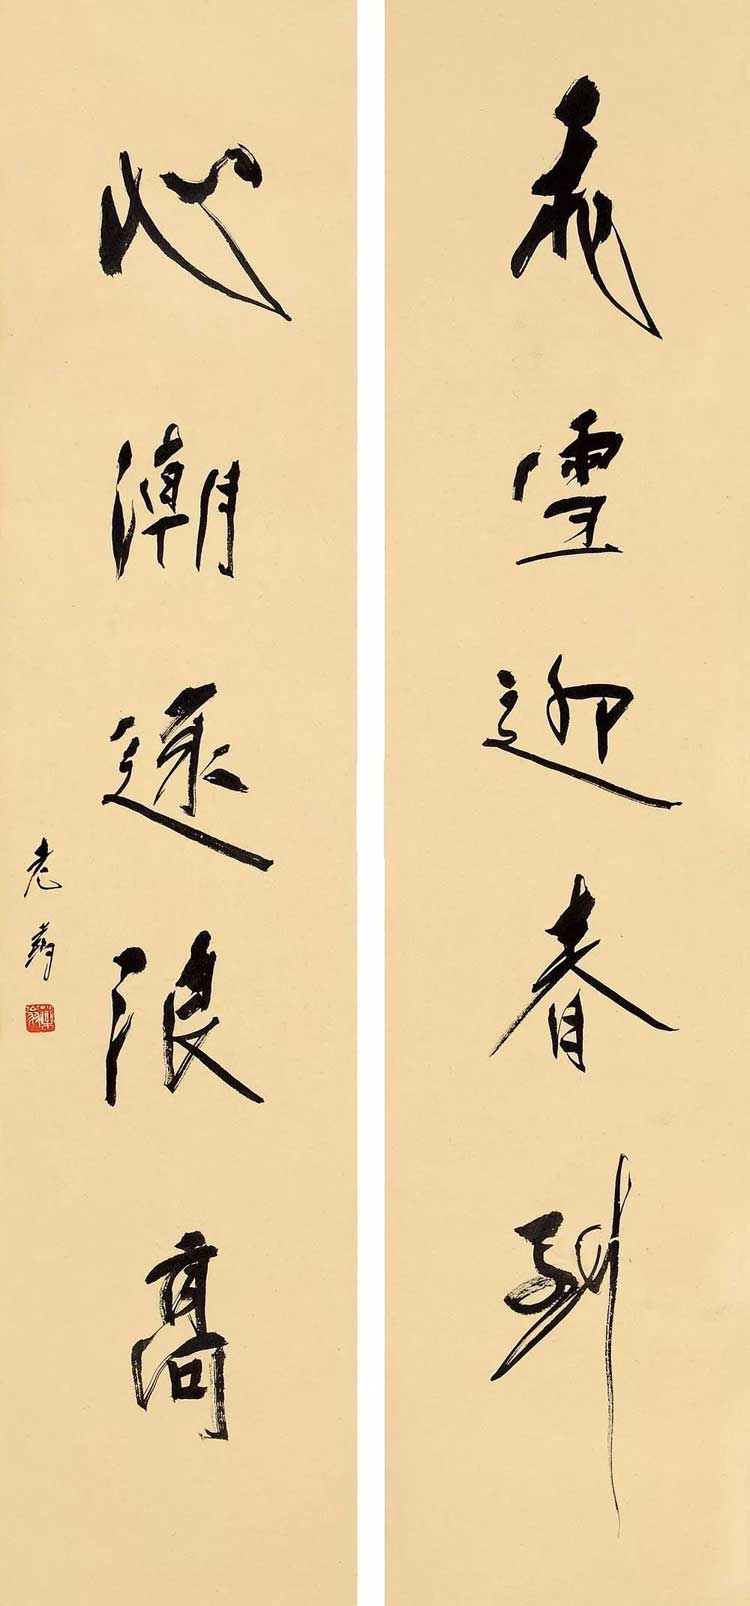 飛雪迎春到
心潮逐浪高
老